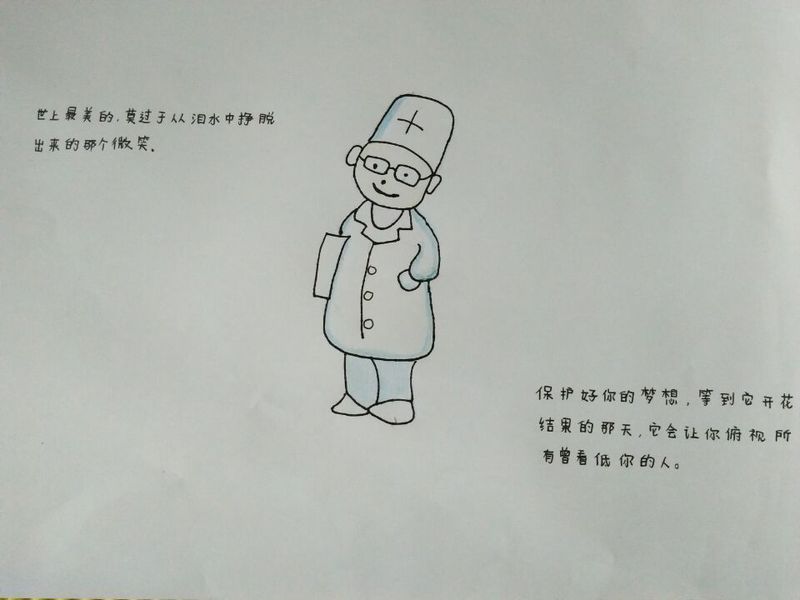 世上最美的，莫过于从泪水中挣脱
出来的那个微笑。
保护好你的梦想，等到它开花
结果的那天，它会让你俯视所
有曾看低你的人。